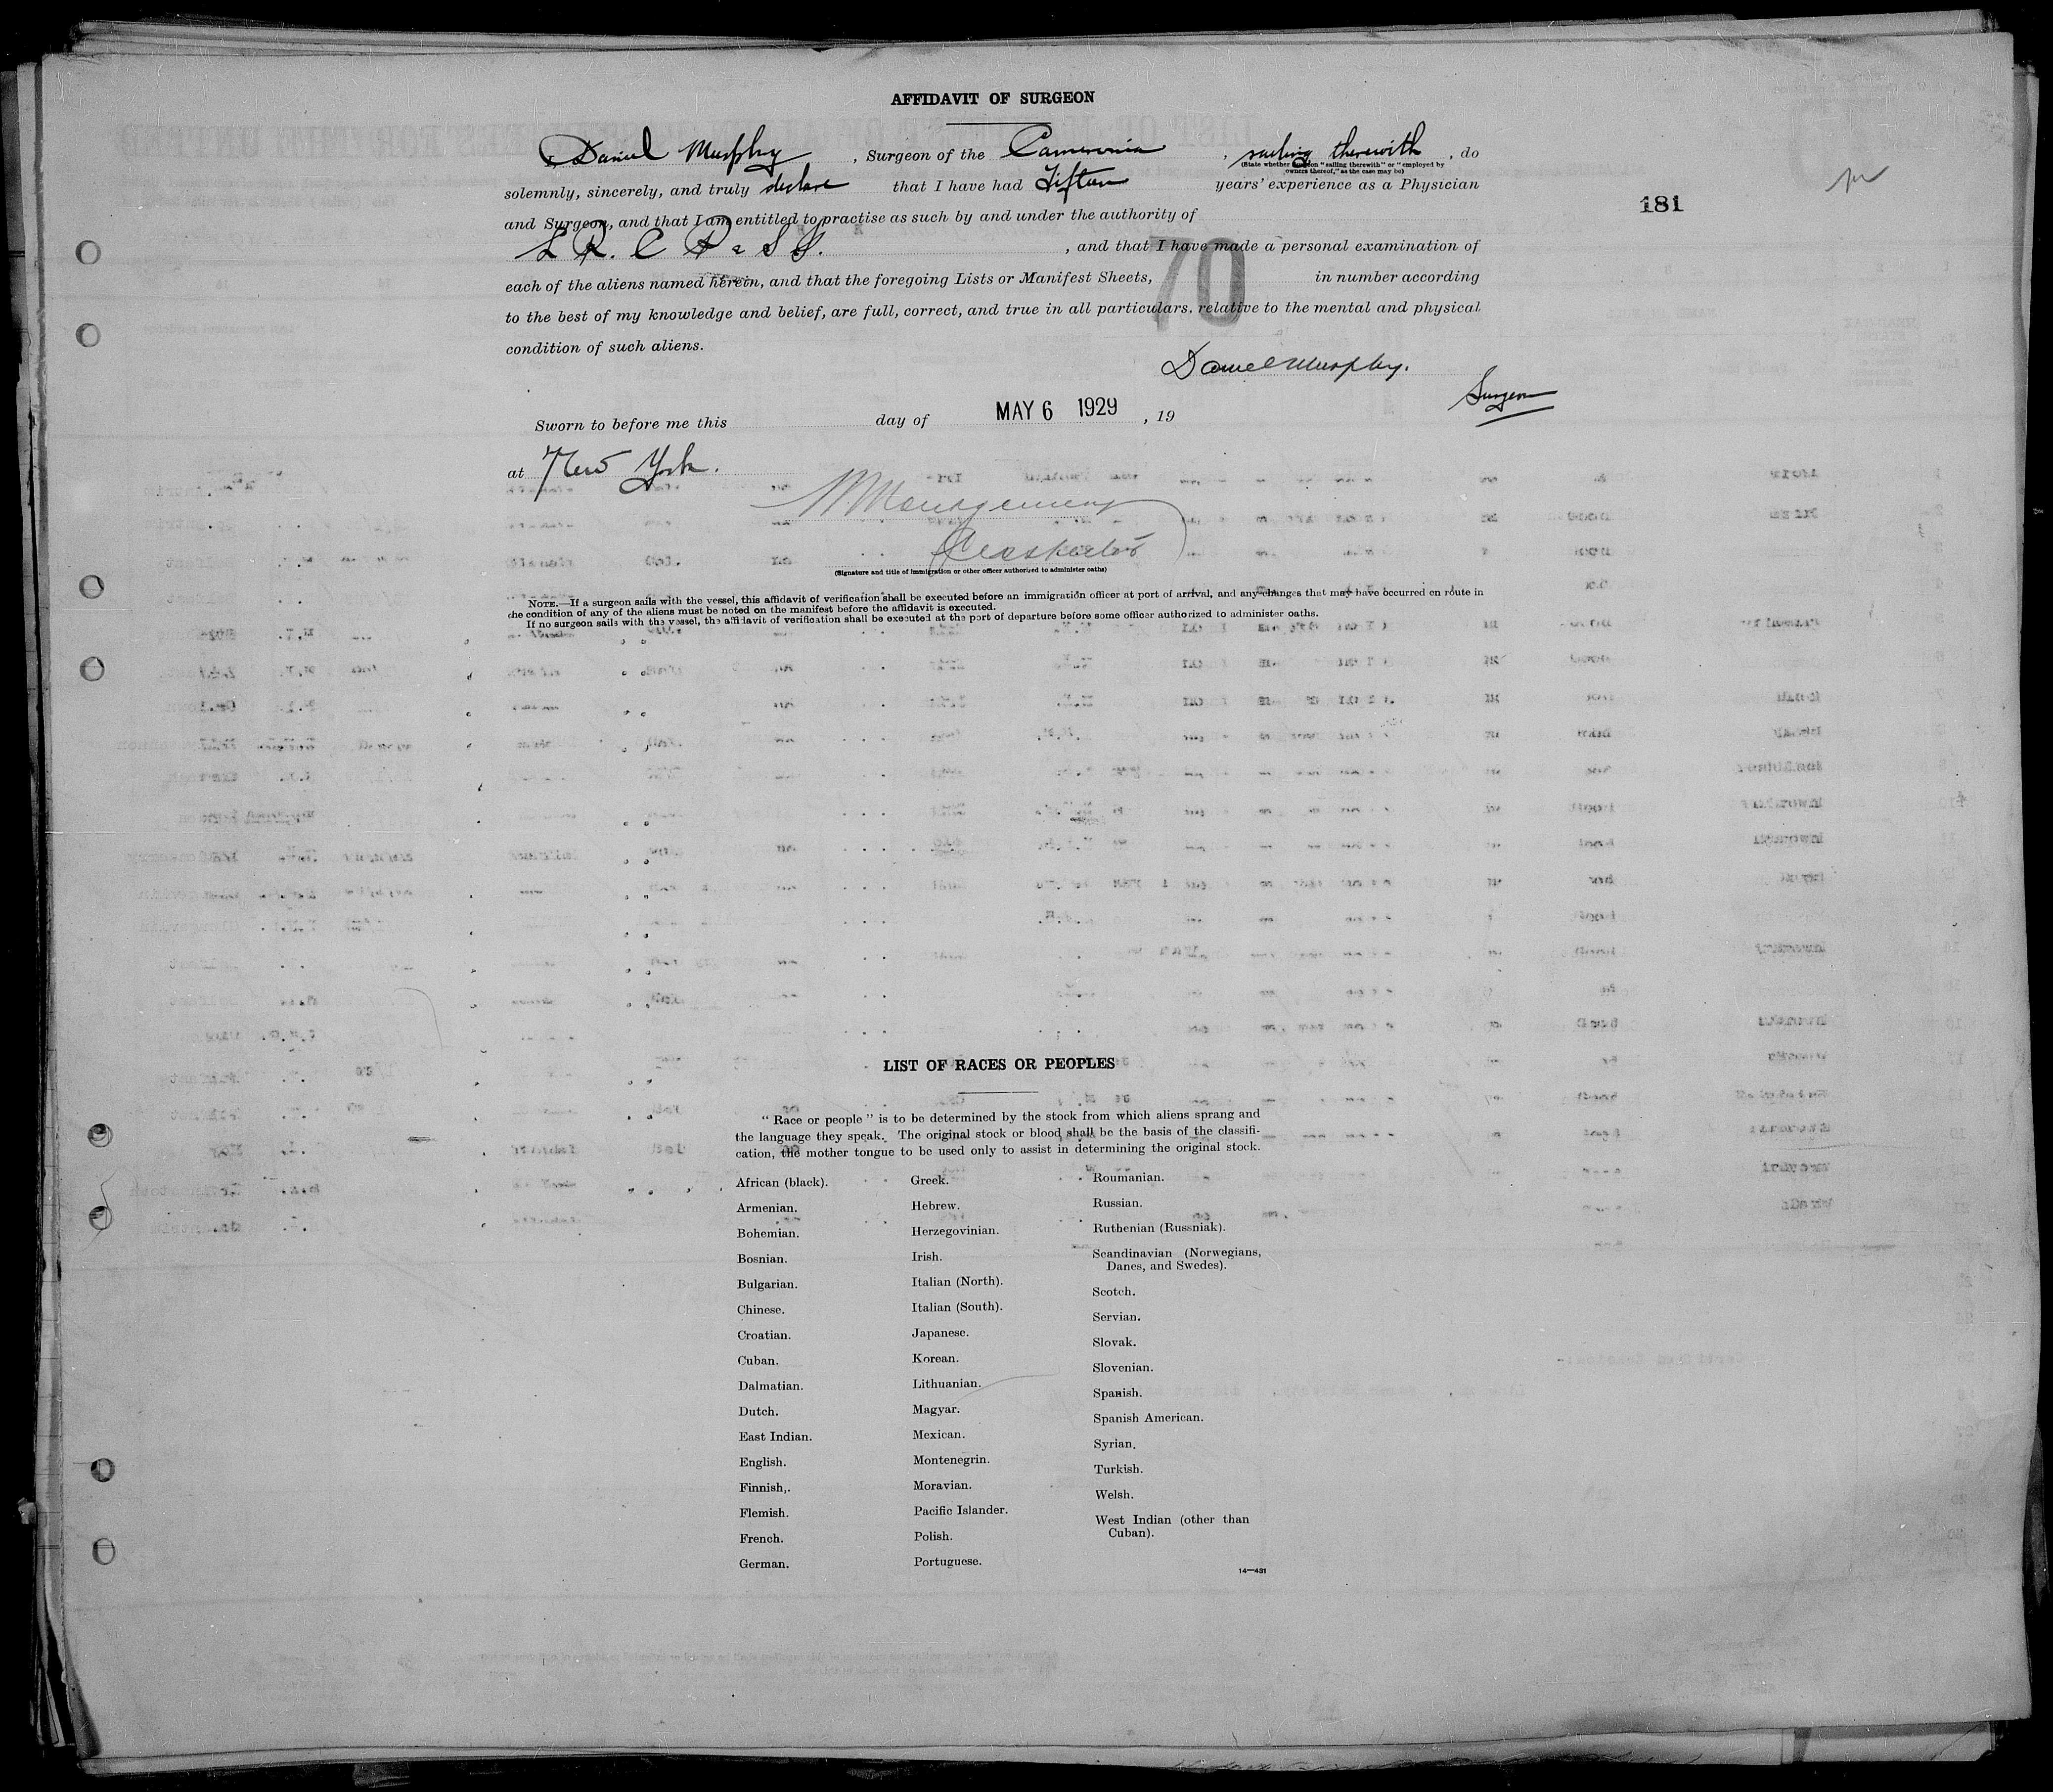 AFFIDAVIT OF SURGEON
181
Daniel Murphy, Surgeon of the Cameronia, sailing therewith, do
(State whether surgeon "sailing therewith" or "employed by
owners thereof," as the case may be)
solemnly, sincerely, and truly declare that I have had Fifteen years' experience as a Physician
and Surgeon, and that I am entitled to practise as such by and under the authority of
L R. C P & S S., and that I have made a personal examination of
70
each of the aliens named herein, and that the foregoing Lists or Manifest Sheets, in number according
to the best of my knowledge and belief, are full, correct, and true in all particulars, relative to the mental and physical
condition of such aliens.
Daniel Murphy.
Surgeon
Sworn to before me this day of MAY 6 1929, 19
at New York.
(Signature and title of immigration or other officer authorized to administer oaths)
NOTE.—If a surgeon sails with the vessel, this affidavit of verification shall be executed before an immigration officer at port of arrival, and any changes that may have occurred en route in
the condition of any of the aliens must be noted on the manifest before the affidavit is executed.
If no surgeon sails with the vessel, the affidavit of verification shall be executed at the port of departure before some officer authorized to administer oaths.
LIST OF RACES OR PEOPLES
"Race or people" is to be determined by the stock from which aliens sprang and
the language they speak. The original stock or blood shall be the basis of the classifi-
cation, the mother tongue to be used only to assist in determining the original stock.
African (black).
Armenian.
Bohemian.
Bosnian.
Bulgarian.
Chinese.
Croatian.
Cuban.
Dalmatian.
Dutch.
East Indian.
English.
Finnish,.
Flemish.
French.
German.
Greek.
Hebrew.
Herzegovinian.
Irish.
Italian (North).
Italian (South).
Japanese.
Korean.
Lithuanian.
Magyar.
Mexican.
Montenegrin.
Moravian.
Pacific Islander.
Polish.
Portuguese.
Roumanian.
Russian.
Ruthenian (Russniak).
Scandinavian (Norwegians,
Danes, and Swedes).
Scotch.
Servian.
Slovak.
Slovenian.
Spanish.
Spanish American.
Syrian.
Turkish.
Welsh.
West Indian (other than
Cuban).
14—431